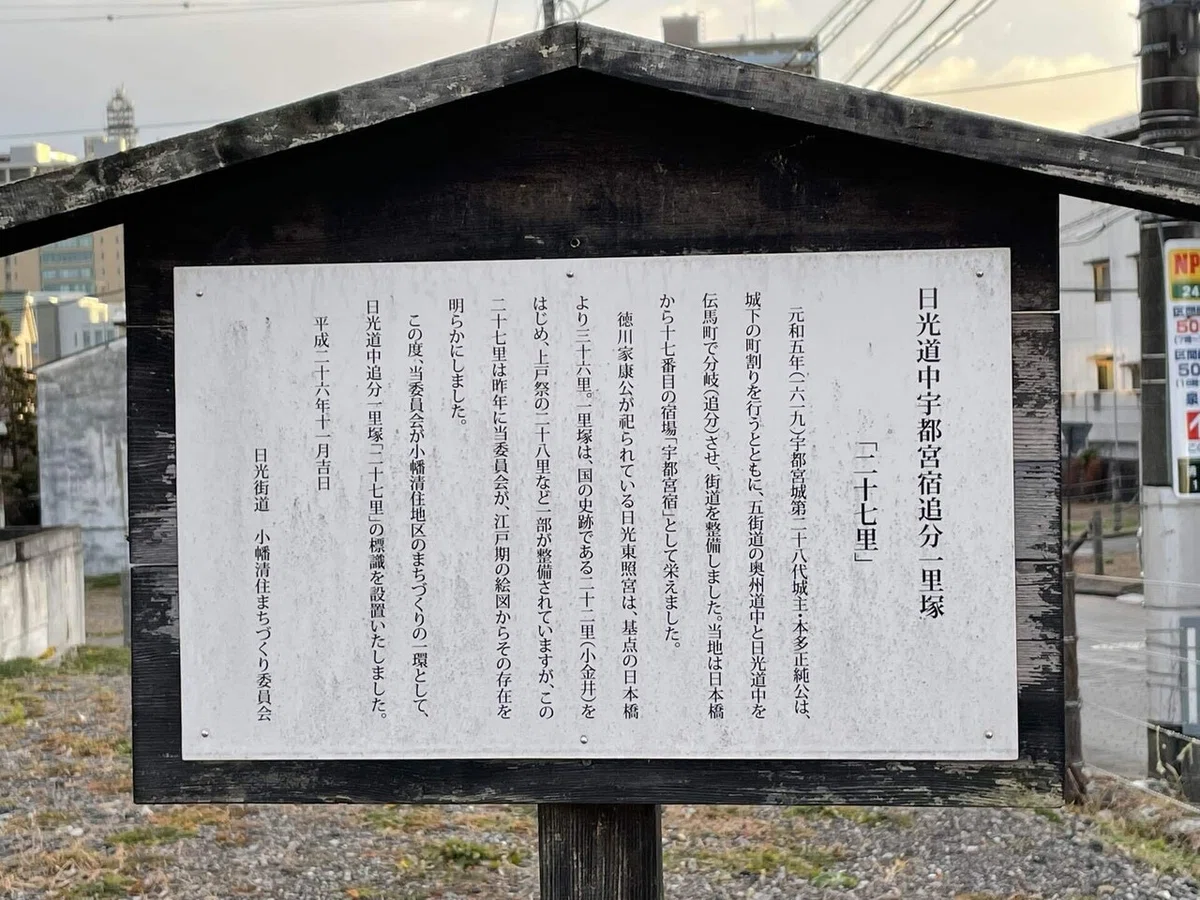 日光道中宇都宮宿追分一里塚
「二十七里」
元和五年(一六一九)宇都宮城第二十八代城主・本多正純公は、
城下の町割りを行うとともに、五街道の奥州道中と日光道中を
伝馬町で分岐(追分)させ、街道を整備しました。当地は日本橋
から十七番目の宿場「宇都宮宿」として栄えました。
徳川家康公が祀られている日光東照宮は、基点の日本橋
より三十六里。一里塚は、国の史跡である二十二里(小金井)を
はじめ、上戸祭の二十八里など一部が整備されていますが、この
二十七里は昨年に当委員会が、江戸期の絵図からその存在を
明らかにしました。
この度、当委員会が小幡清住地区のまちづくりの一環として、
日光道中追分一里塚「二十七里」の標識を設置いたしました。
平成二十六年十一月吉日
日光街道 小幡清住まちづくり委員会
NP
24
50
50
泉